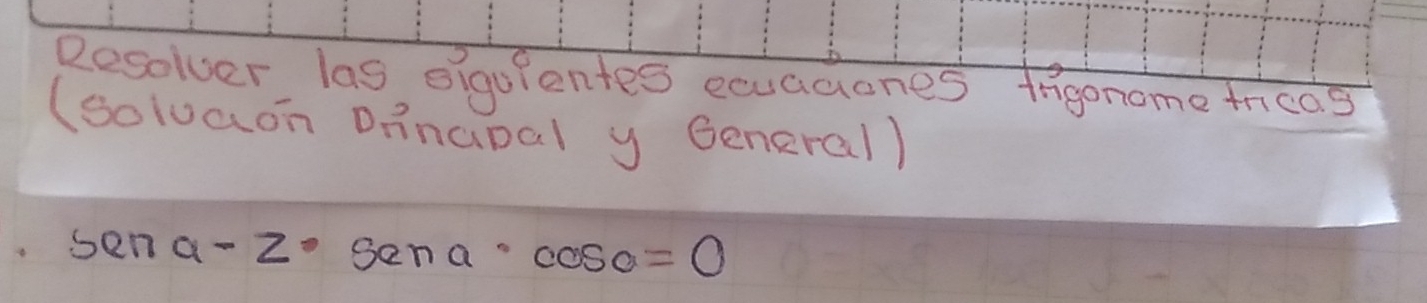 Resolver las siguientes ecuaciones trigonometricas
(solución Principal y General)
. sen a - 2 • sen a • cos a = 0